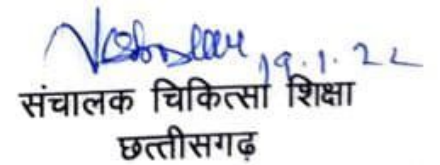 19.1.22
संचालक चिकित्सा शिक्षा
छत्तीसगढ़